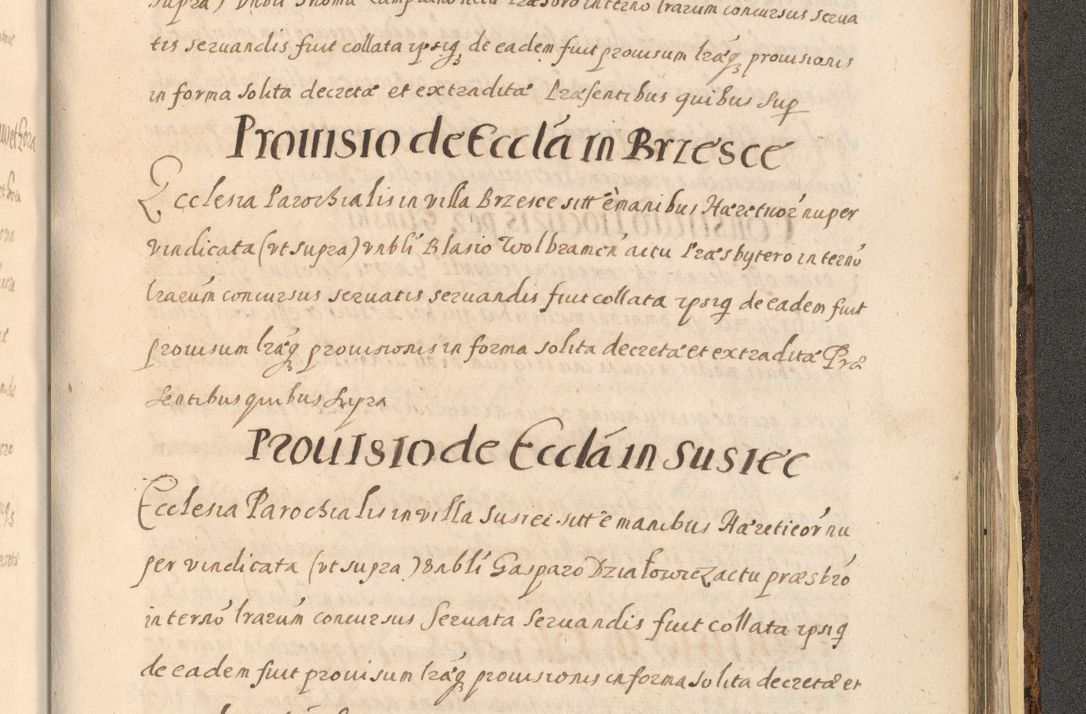 tis servandis fuit collata ipsiq de eadem fuit provisum lráq provisionis
in forma solita decretæ et extraditæ Præsentibus quibus sup
Provisio de Ecclá in Brzesce
Ecclesia Parochialis in villa Brzesce sitt è manibus Hæreticor nuper
vindicata (vt supra) vnbli Blasio Wolbramen actu Præsbytero in terno
lrarum concursus servatis servandis fuit collata ipsiq de eadem fuit
provisum lráq provisionis in forma solita decretæ et extraditæ Præ
sentibus quibus supra
Provisio de Ecclá in Susiec
Ecclesia Parochialis in villa Susiec sitt è manibus Hæreticor nu
per vindicata (vt supra) vnbli Gasparo Działowicz actu præsbro
in terno lrarum concursus servata servandis fuit collata ipsiq
de eadem fuit provisum lráq provisionis in forma solita decretæ et